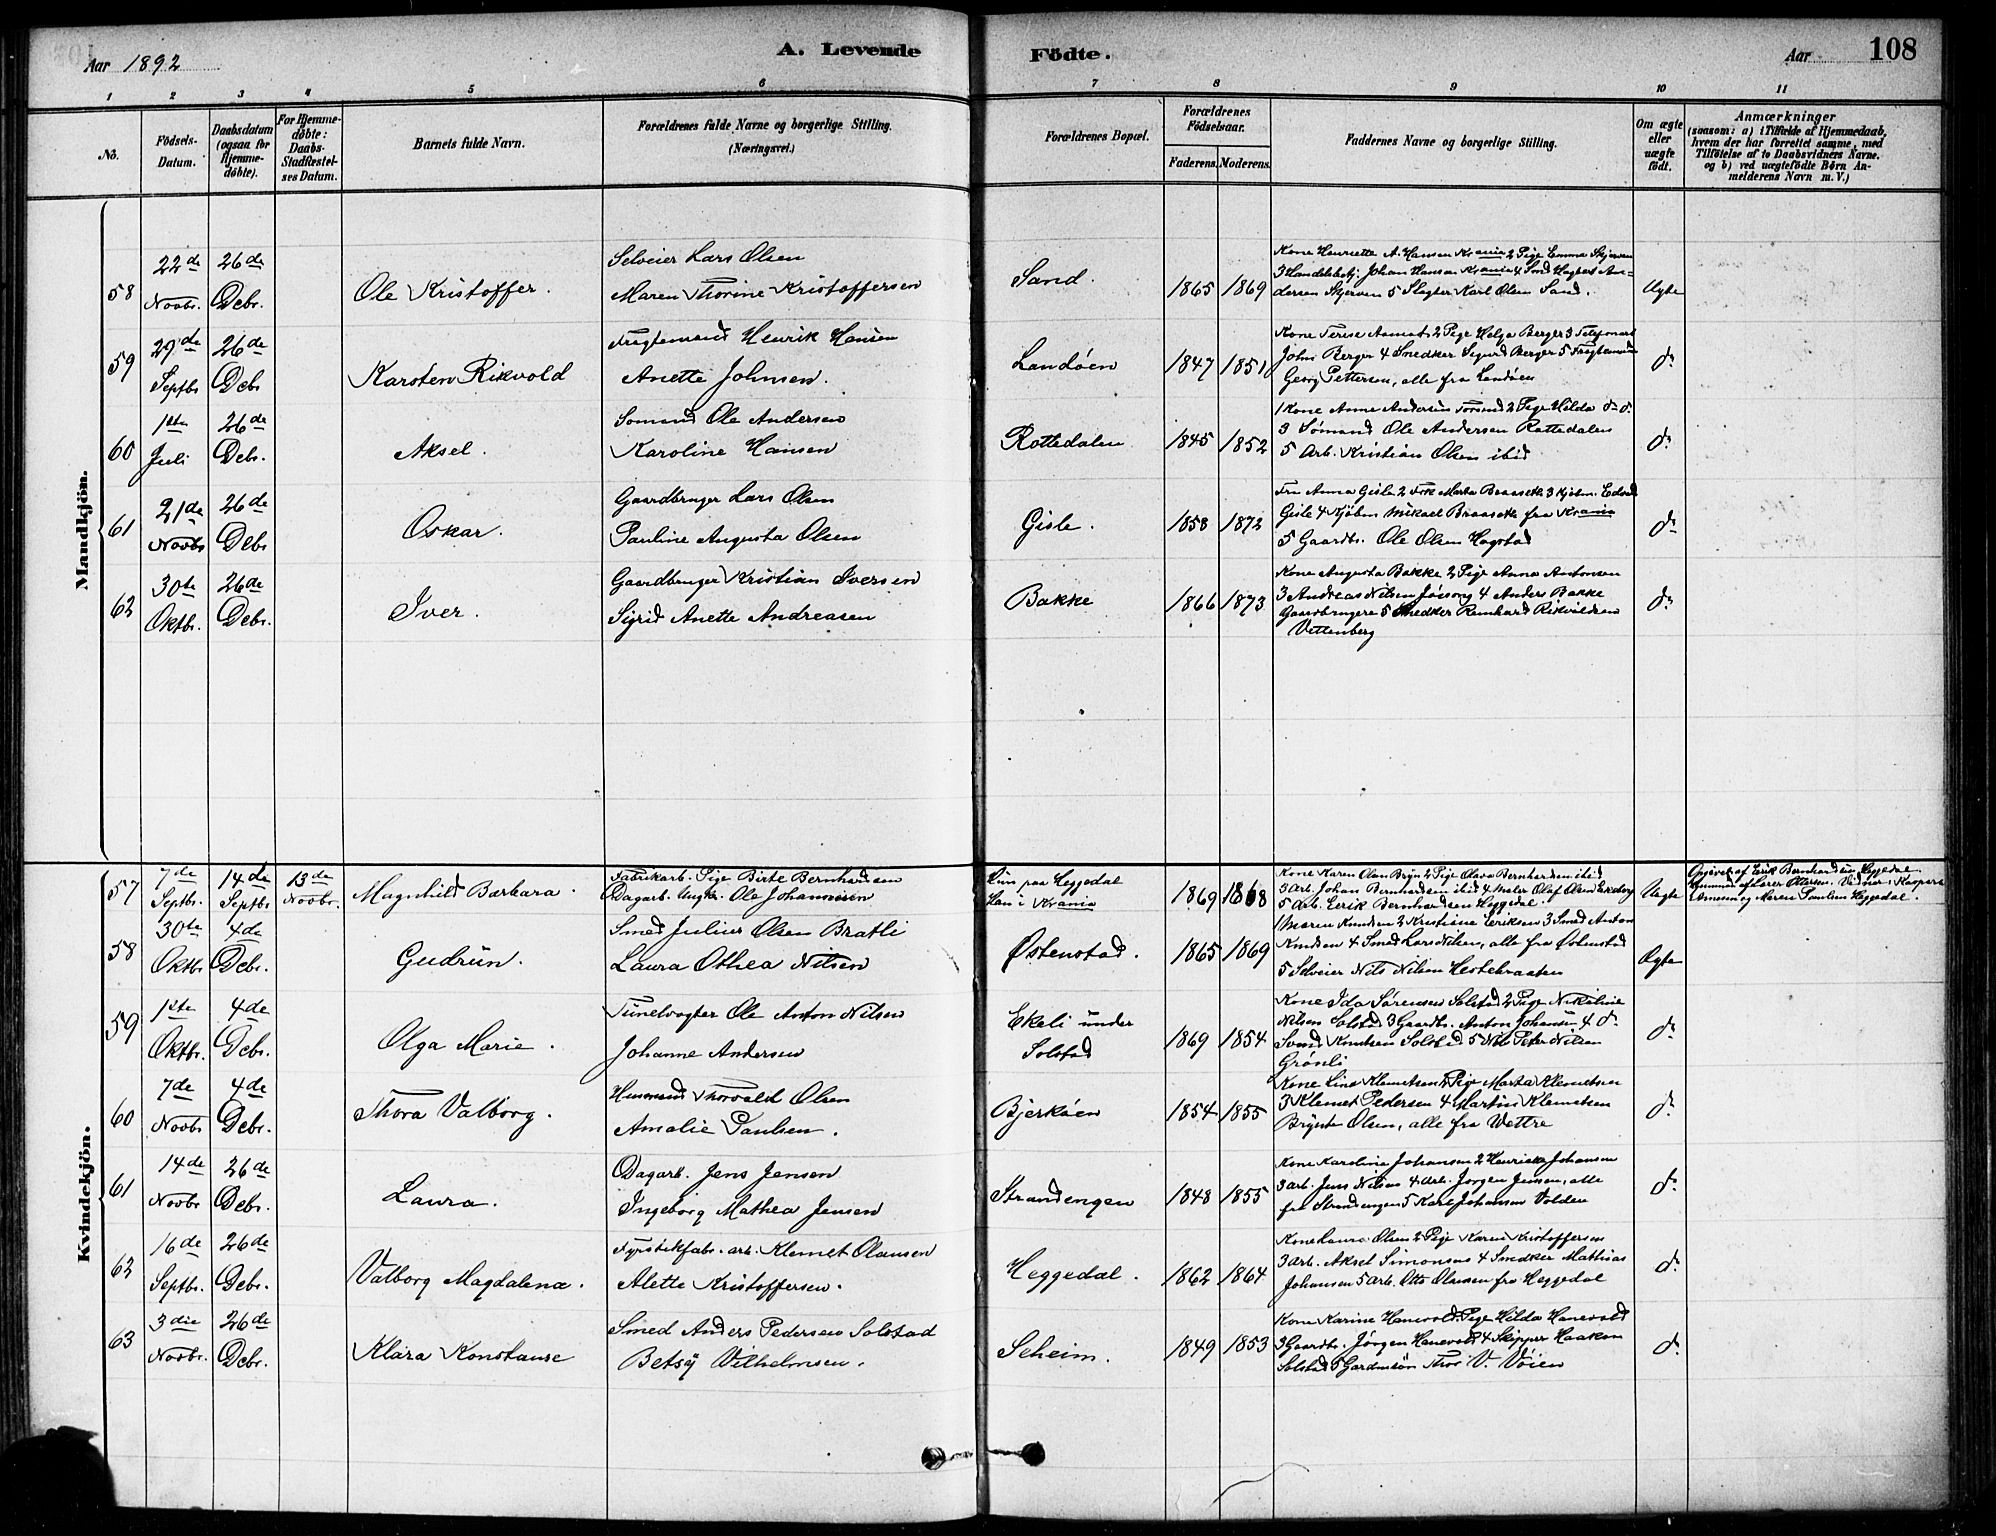 Aar 1892
A. Levende Födte.
Aar 108
1 2 3 4 5 6 7 8 9 10 11
No.
Födsels-Datum.
Daabsdatum (ogsaa for Hjemme-döbte).
For Hjemme-döbte: Daabs-Stadfæstel-ses Datum.
Barnets fulde Navn.
Forældrenes fulde Navne og borgerlige Stilling. (Næringsvei.)
Forældrenes Bopæl.
Forældrenes Födselsaar.
Faderens. Moderens.
Faddernes Navne og borgerlige Stilling.
Om ægte eller uægte födt.
Anmærkninger
(saasom: a) i Tilfælde af Hjemmedaab,
hvem der har forrettet samme, med
Tilföielse af to Daabsvidners Navne,
og b) ved uægtefödte Börn An-
melderens Navn m. V.)
Mandkjön.
58 22de Novbr. 26de Debr. Ole Kristoffer.
Selveier Lars Olsen
Maren Thorine Kristoffersen
Sand. 1865 1869
Kone Henriette A. Hansen Krania 2 Pige Emma Skjerven
3 Handelsbetj. Johan Hansen Krania 4 Smed Hagbart An-
dersen Skjerven 5 Slagter Karl Olsen Sand.
Ægte
59 29de Septbr 26de Debr Karsten Rikvold
Fragtemand Henrik Hansen
Anette Johnsen.
Landøen 1847 1851
Kone Terese Aamot 2 Pige Helga Berger 3
John Berger 4 Snedker Sigurd Berger 5 Fragtemand
Georg Pettersen, alle fra Landøen
do
60 1ste Juli 26de Debr. Aksel.
Sömand Ole Andersen
Karoline Hansen
Rottedalen 1845 1852
1 Kone Anne Andersen 2 Pige Hilda do do
3 Sømand Ole Andersen Rottedalen
5 Arb. Kristian Olsen ibid
do
61 21de Novbr 26de Debr Oskar.
Gaardbruger Lars Olsen
Pauline Augusta Olsen
Gisle. 1858 1872
Fru Anna Gisle 2 Frk Marta Braaseth 3 Kjöbm. Edvard
Gisle 4 Kjöbm Mikael Braaseth fra Krania
5 Gaardbr. Ole Olsen Hogstad
do
62 30te Oktbr. 26de Debr. Iver.
Gaardbruger Kristian Iversen
Sigrid Anette Andreasen
Bakke 1866 1873
Kone Augusta Bakke 2 Pige Anna Antonsen
3 Andreas Nilsen Jössong 4 Anders Bakke
Gaardbrugere 5 Snedker Renhard Rikvildsen
Vettenberg
do
Kvindekjön.
57 7de Septbr. 14de Septbr 13de Novbr. Magnhild Barbara.
Fabrikarb. Pige Birte Bernhardsen
Dagarb. Ungk. Ole Johannesen
Hun paa Heggedal
Han i Krania
1869 1868
Kone Karen Olsen Bryn 2 Pige Olava Bernhardsen ibid
3 Arb. Johan Bernhardsen ibid 4 Maler Olaf Olsen
5 Arb. Eerik Bernhardsen Heggedal.
Uægte
Opgivet af Erik Bernhardsen Heggedal
58 30te Oktbr 4de Debr. Gudrun.
Smed Julius Olsen Bratli
Laura Othea Nilsen
Østenstad. 1865 1869
1 Maren Knudsen 2 Kristiane Eriksen 3 Smed Anton
Knudsen 4 Smed Lars Nilsen, alle fra Østenstad
5 Selveier Nils Nilsen Hestebraaten
Ægte
59 1ste Oktbr. 4de Debr. Olga Marie.
Tunelvogter Ole Anton Nilsen
Johanne Andersen
Ekeli under
Solstad
1869 1854
Kone Ida Sørensen Solstad 2 Pige Nikoline
Nilsen Solstad 3 Gaardbr. Anton Johansen 4 do
Svend Knudsen Solstad 5 Nils Peter Nilsen
Grønli
do
60 7de Novbr 4de Debr. Thora Valborg.
Husmand Thorvald Olsen
Amalie Paulsen.
Bjerkøen 1854 1855
Kone Lina Klemetsen 2 Pige Marta Klemetsen
3 Klemet Pedersen 4 Martin Klemetsen
Olsen, alle fra Wettre
do
61 14de Novbr 26de Debr. Laura.
Dagarb. Jens Jensen
Ingeborg Mathea Jensen
Strandengen 1848 1855
Kone Karoline Johansen 2 Henrikke Johansen
3 arb. Jens Nilsen 4 arb. Jørgen Jensen, alle
fra Strandengen 5 Karl Johansen Volden
do
62 16de Septbr. 26de Debr. Valborg Magdalena.
Fyrstikfabr. arb. Klemet Olausen
Alette Kristoffersen.
Heggedal. 1862 1864
Kone Laura Olsen 2 Pige Karen Kristoffersen
3 arb. Aksel Simonsen 4 Snedker Mathias
Johansen 5 arb. Otto Olausen fra Heggedal
do
63 3die Novbr. 26de Debr. Klara Konstanse
Smed Anders Pedersen Solstad
Betsy Vilhelmsen.
Seheim. 1849 1853
Kone Karine Hanevold 2 Pige Hilda Hanevold
3 Gaardbr. Jørgen Hanevold 4 Skipper Haakon
Solstad 5 Gardmsön Thor V. Vöien
do